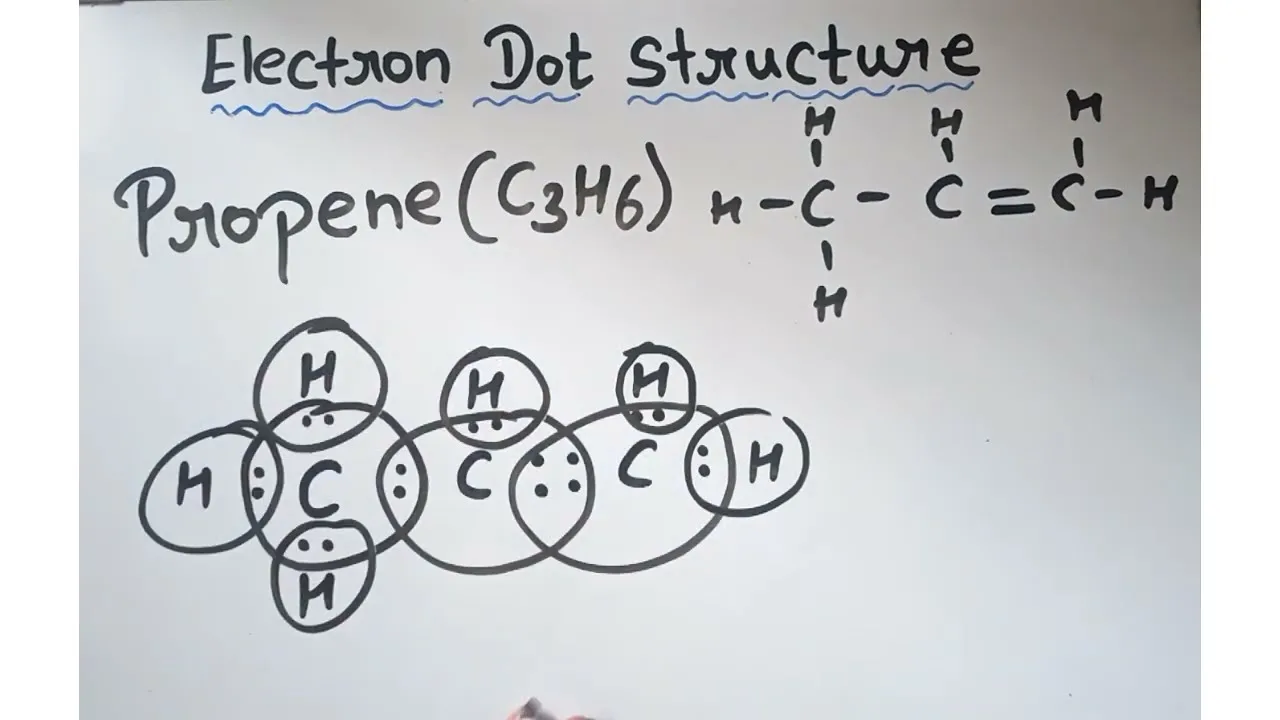 Electron Dot Structure
Propene (C3H6)
H H H
H - C - C = C - H
H
H H H
H : C : C :: C : H
H